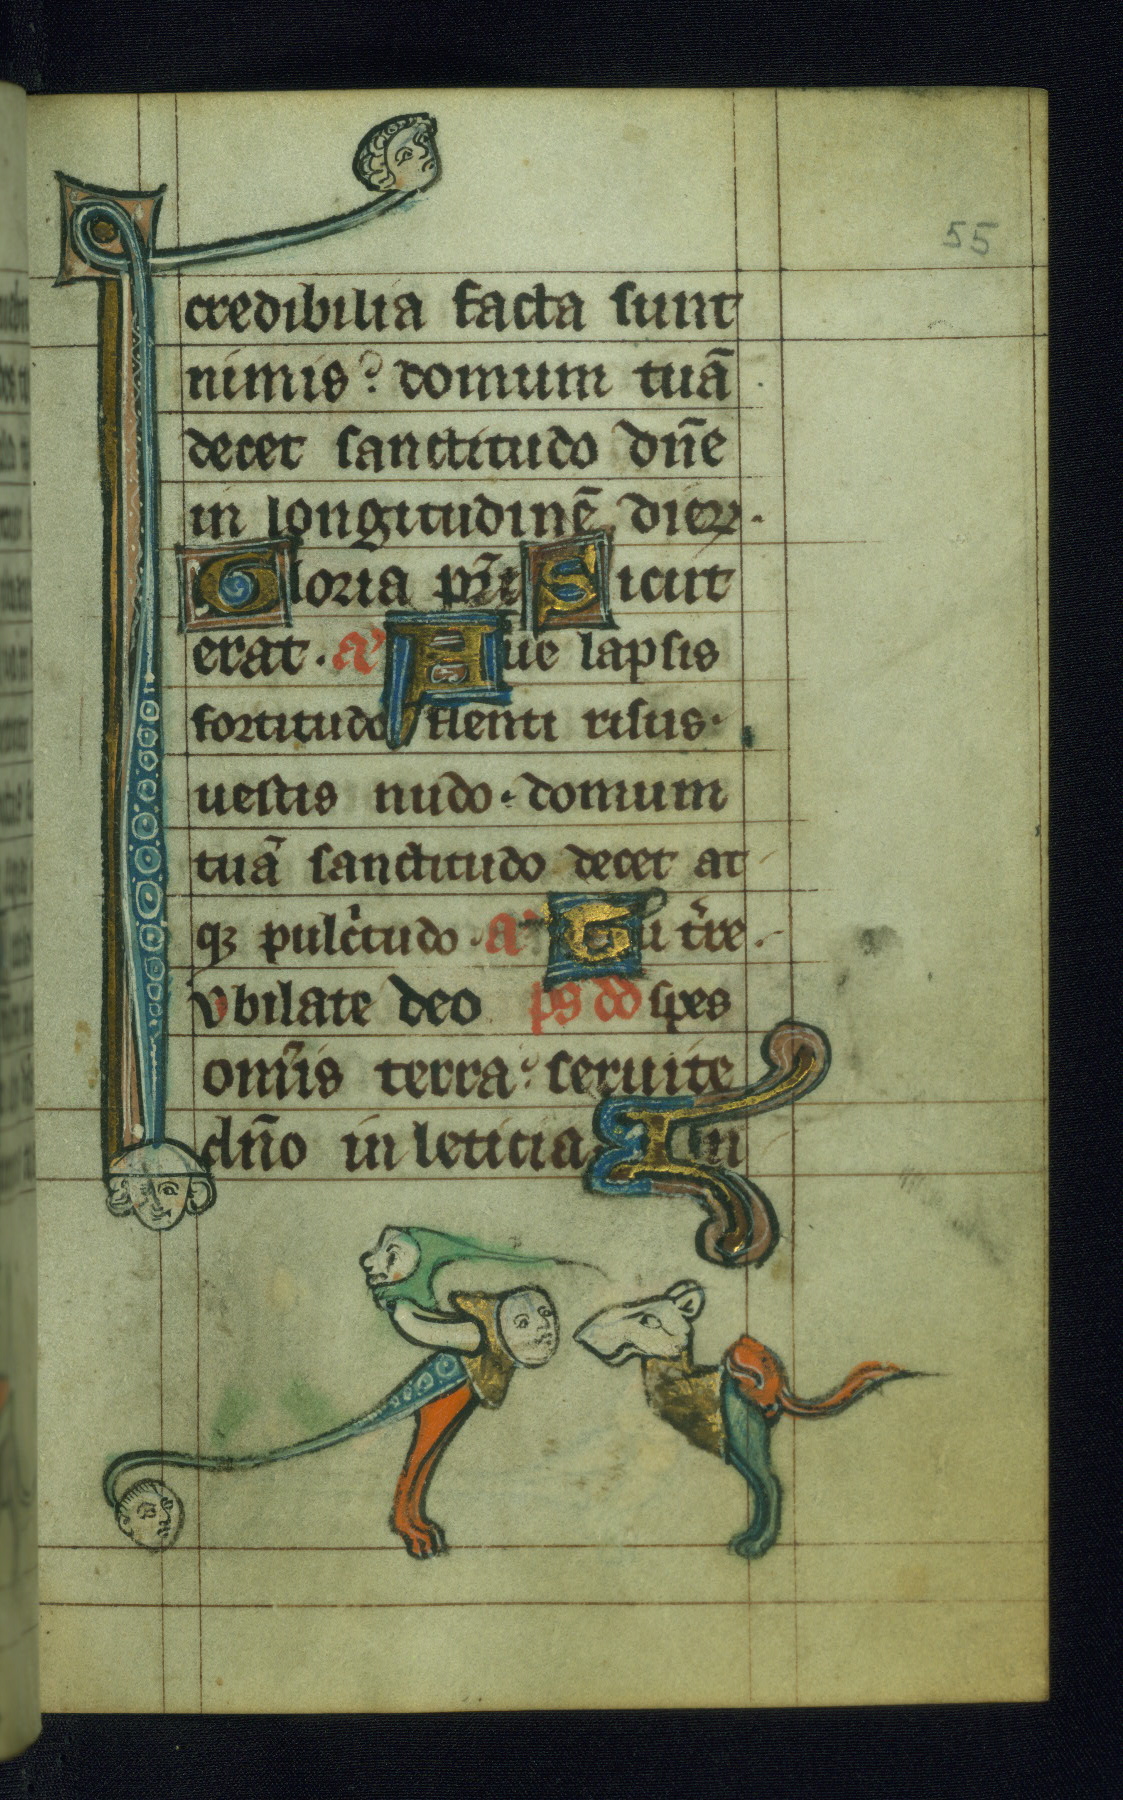 55
credibilia facta sunt
nimis? domum tuā
decet sanctitudo dñe
in longitudinē dieꝝ.
Gloria pr̄i Sicut
erat. a' Aue lapsis
fortitudo flenti risus.
uestis nudo. domum
tuā sanctitudo decet at
qꝫ pulc̄tudo. a' Tu t̄re.
Vbilate deo ps dd spes
omīs terra? seruite
dño in leticia. In